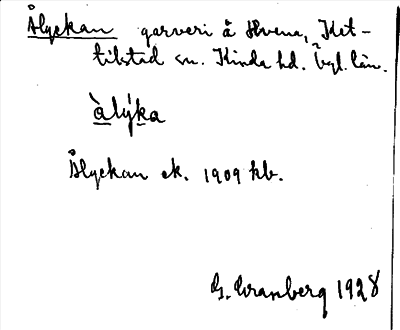 Ålyckan garveri å Hvena, Ket-
tilstad sn. Kinda hd. Ögl. län.
àlýka
Ålyckan ek. 1909 kb.
G. Granberg 1928